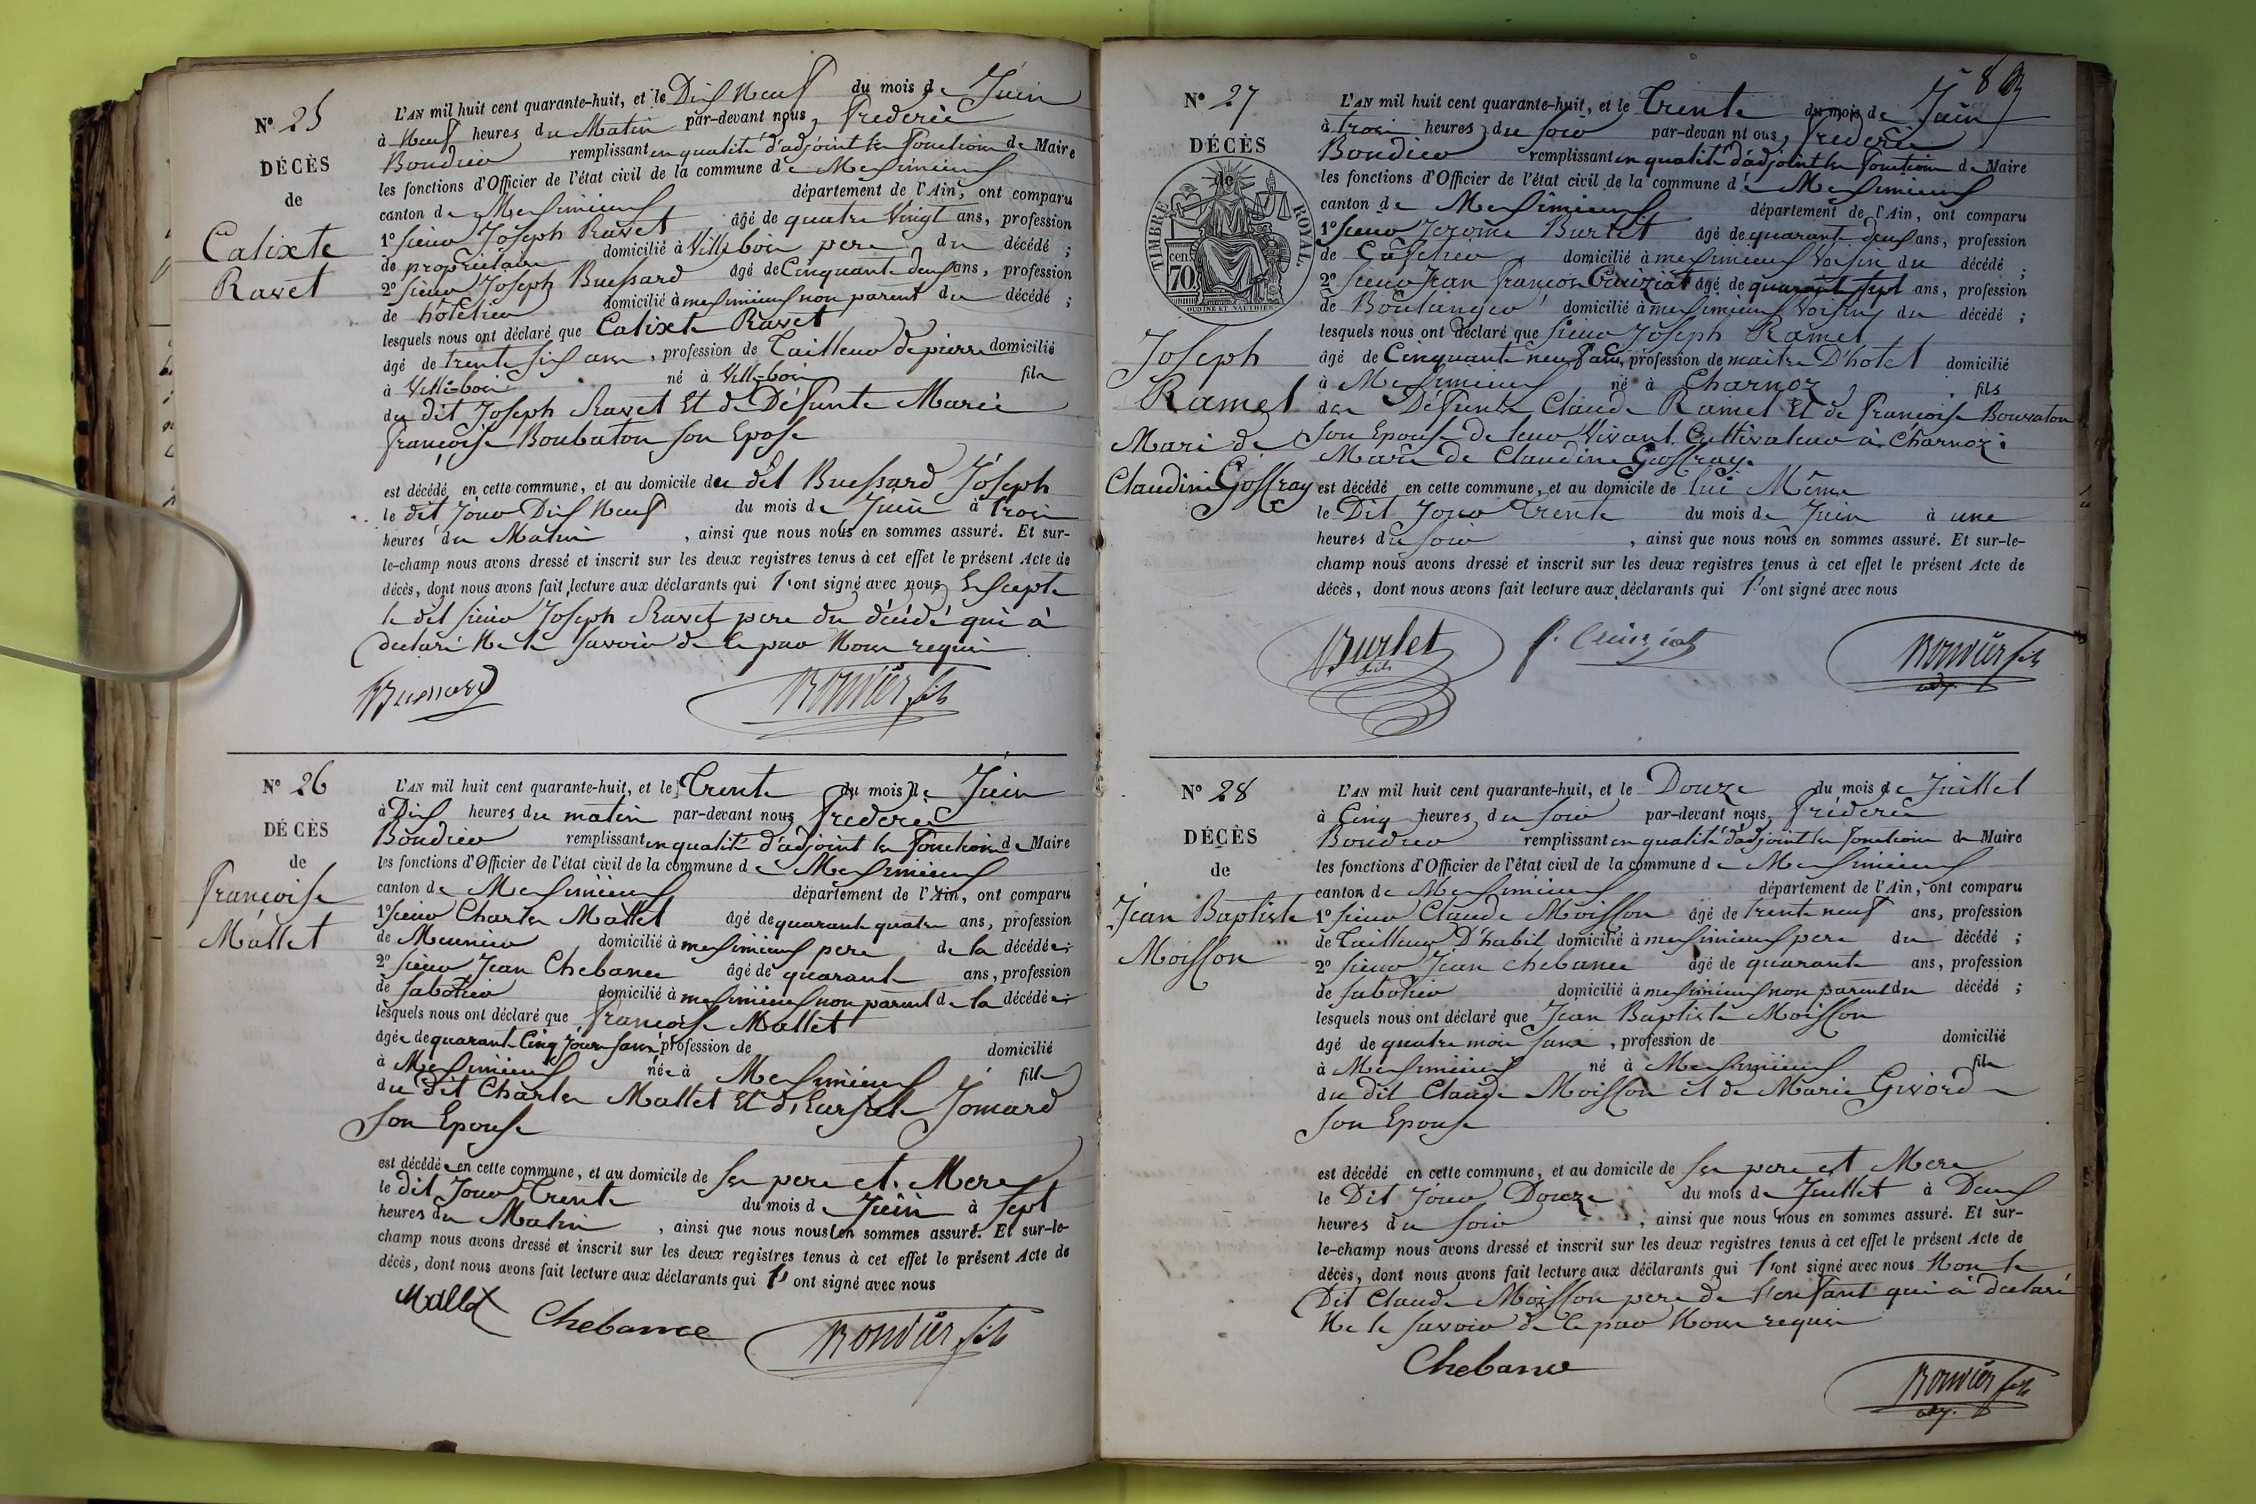 Nº 25
DÉCÈS
de
Calixte
Ravet
L'AN mil huit cent quarante-huit, et le Dix Neuf du mois de Juin
à Neuf heures du Matin par-devant nous, Frederic
Bondieu remplissant en qualité d'adjoint les fonctions de Maire
les fonctions d'Officier de l'état civil de la commune de Meximieux
canton de Meximieux département de l'Ain, ont comparu
1º sieur Joseph Ravet âgé de quatre Vingt ans, profession
de propriétaire domicilié à Villebois pere du décédé ;
2º sieur Joseph Bussard âgé de Cinquante deux ans, profession
de hôtelier domicilié à meximieux non parent du décédé ;
lesquels nous ont déclaré que Calixte Ravet
âgé de trente six ans, profession de Tailleur de pierre domicilié
à Villebois né à Villebois fils
du dit Joseph Ravet Et de Défunte Marie
françoise Boubaton son Epose
est décédé en cette commune, et au domicile du dit Bussard Joseph
le dit jour Dix Neuf du mois de Juin à trois
heures du Matin, ainsi que nous nous en sommes assuré. Et sur-
le-champ nous avons dressé et inscrit sur les deux registres tenus à cet effet le présent Acte de
décès, dont nous avons fait lecture aux déclarants qui l'ont signé avec nous Excepte
le dit sieur Joseph Ravet pere du décédé qui à
declaré Ne le savoir de ce par Nous requis
Bussard Bondieu fils
Nº 26
DÉCÈS
de
Françoise
Mallet
L'AN mil huit cent quarante-huit, et le Trente du mois de Juin
à Dix heures du matin par-devant nous Frederic
Bondieu remplissant en qualité d'adjoint les fonctions de Maire
les fonctions d'Officier de l'état civil de la commune de Meximieux
canton de Meximieux département de l'Ain, ont comparu
1º sieur Charles Mallet âgé de quarante quatre ans, profession
de Meunier domicilié à meximieux pere de la décédée ;
2º sieur Jean Chebance âgé de quarante ans, profession
de sabotier domicilié à meximieux non parent de la décédée ;
lesquels nous ont déclaré que françoise Mallet
âgée de quarante Cinq jours sans profession de domicilié
à Meximieux née à Meximieux fille
du Dit Charles Mallet Et d'Eursule Jomard
son Epouse
est décédée en cette commune, et au domicile de ses pere et Mere
le dit Jour Trente du mois de Juin à sept
heures du Matin, ainsi que nous nous en sommes assuré. Et sur-le-
champ nous avons dressé et inscrit sur les deux registres tenus à cet effet le présent Acte de
décès, dont nous avons fait lecture aux déclarants qui l'ont signé avec nous
Mallet Chebance Bondieu fils
Nº 27
DÉCÈS
de
TIMBRE ROYAL
70 cen.
Joseph
Ramel
Mari de
Claudine Goffray
L'AN mil huit cent quarante-huit, et le Trente du mois de Juin
à trois heures du soir par-devan nt ous, Frederic
Bondieu remplissant en qualité d'adjoint les fonctions de Maire
les fonctions d'Officier de l'état civil de la commune de Meximieux
canton de Meximieux département de l'Ain, ont comparu
1º sieur Jerome Burlet âgé de quarante deux ans, profession
de Cafetier, domicilié à meximieux Voisin du décédé ;
2º sieur Jean françois Cruiziat âgé de quarante sept ans, profession
de Boulanger domicilié à meximieux Voisin du décédé ;
lesquels nous ont déclaré que sieur Joseph Ramel
âgé de Cinquante neuf ans, profession de maitre D'hotel domicilié
à Meximieux né à Charnoz fils
des Défunts Claude Ramel Et de françoise Bouvaton
son Epouse de leur Vivant Cultivateur à Charnoz.
Mari de Claudine Goffray.
est décédé en cette commune, et au domicile de lui Même
le Dit Jour Trente du mois de Juin à une
heures du soir, ainsi que nous nous en sommes assuré. Et sur-le-
champ nous avons dressé et inscrit sur les deux registres tenus à cet effet le présent Acte de
décès, dont nous avons fait lecture aux déclarants qui l'ont signé avec nous
Burlet fils f. Cruiziat Bondieu fils
adj.
Nº 28
DÉCÈS
de
Jean Baptiste
Moisson
L'AN mil huit cent quarante-huit, et le Douze du mois de Juillet
à Cinq heures du soir par-devant nous, Fréderic
Bondieu remplissant en qualité d'adjoint les fonctions de Maire
les fonctions d'Officier de l'état civil de la commune de Meximieux
canton de Meximieux département de l'Ain, ont comparu
1º sieur Claude Moisson âgé de trente neuf ans, profession
de Tailleur D'habit domicilié à meximieux pere du décédé ;
2º sieur Jean Chebance âgé de quarante ans, profession
de sabotier domicilié à meximieux non parent du décédé ;
lesquels nous ont déclaré que Jean Baptiste Moisson
âgé de quatre mois sans, profession de domicilié
à Meximieux né à Meximieux fils
du dit Claude Moisson et de Marie Givord
son Epouse
est décédé en cette commune, et au domicile de ses pere et Mere
le Dit Jour Douze du mois de Juillet à Deux
heures du soir, ainsi que nous nous en sommes assuré. Et sur-
le-champ nous avons dressé et inscrit sur les deux registres tenus à cet effet le présent Acte de
décès, dont nous avons fait lecture aux déclarants qui l'ont signé avec nous Non le
Dit Claude Moisson pere de l'enfant qui à déclaré
Ne le savoir de ce par Nous requis
Chebance Bondieu fils
adj.